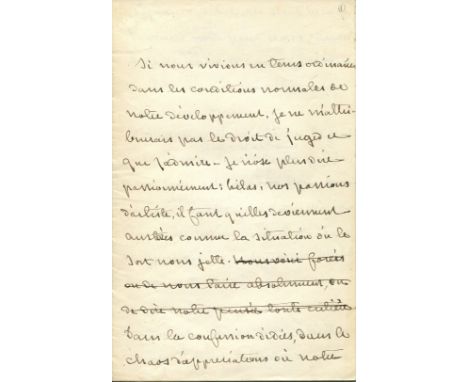 Si nous vivions en tems ordinaires
dans les conditions normales de
notre développement, je ne m'attri-
buerais pas le droit de juger ce
que j'admire – je n'ose plus dire
passionnément; hélas, nos passions
d'artiste, il faut qu'elles deviennent
austères comme la situation où le
sort nous jette. Nous voici forcés
ou de nous taire absolument, ou
de dire notre pensée toute entière
Dans la confusion d'idées, dans le
chaos d'appréciations où notre